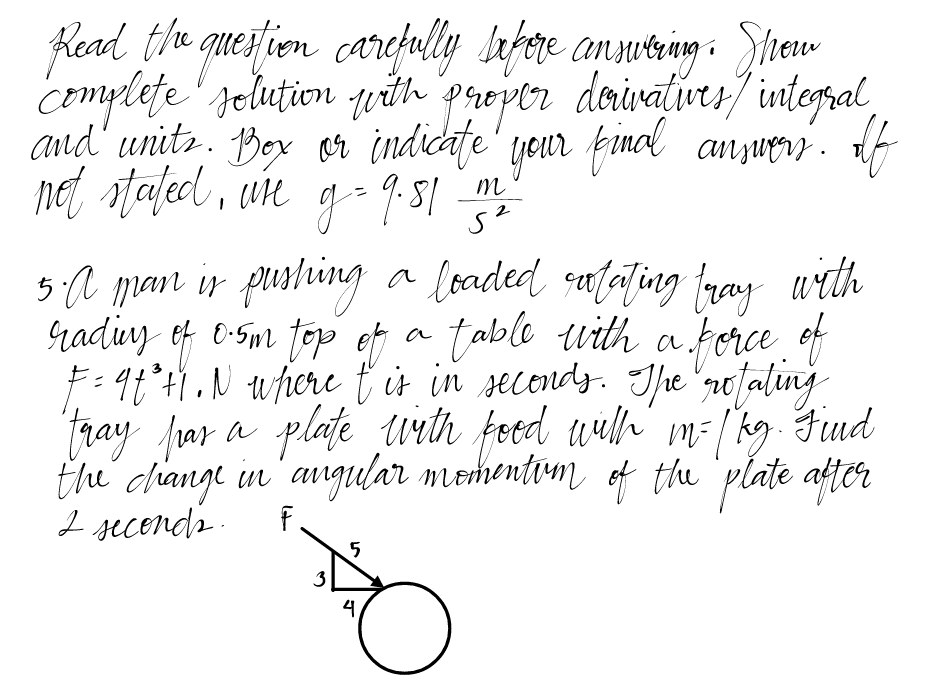 Read the question carefully before answering. Show
complete solution with proper derivatives/integral
and units. Box or indicate your final answers. If
not stated, use g = 9.81 m/s²
5. A man is pushing a loaded rotating tray with
radius of 0.5m top of a table with a force of
F = 4t³+1. N where t is in seconds. The rotating
tray has a plate with food with m=1 kg. Find
the change in angular momentum of the plate after
2 seconds.
F
5
3
4